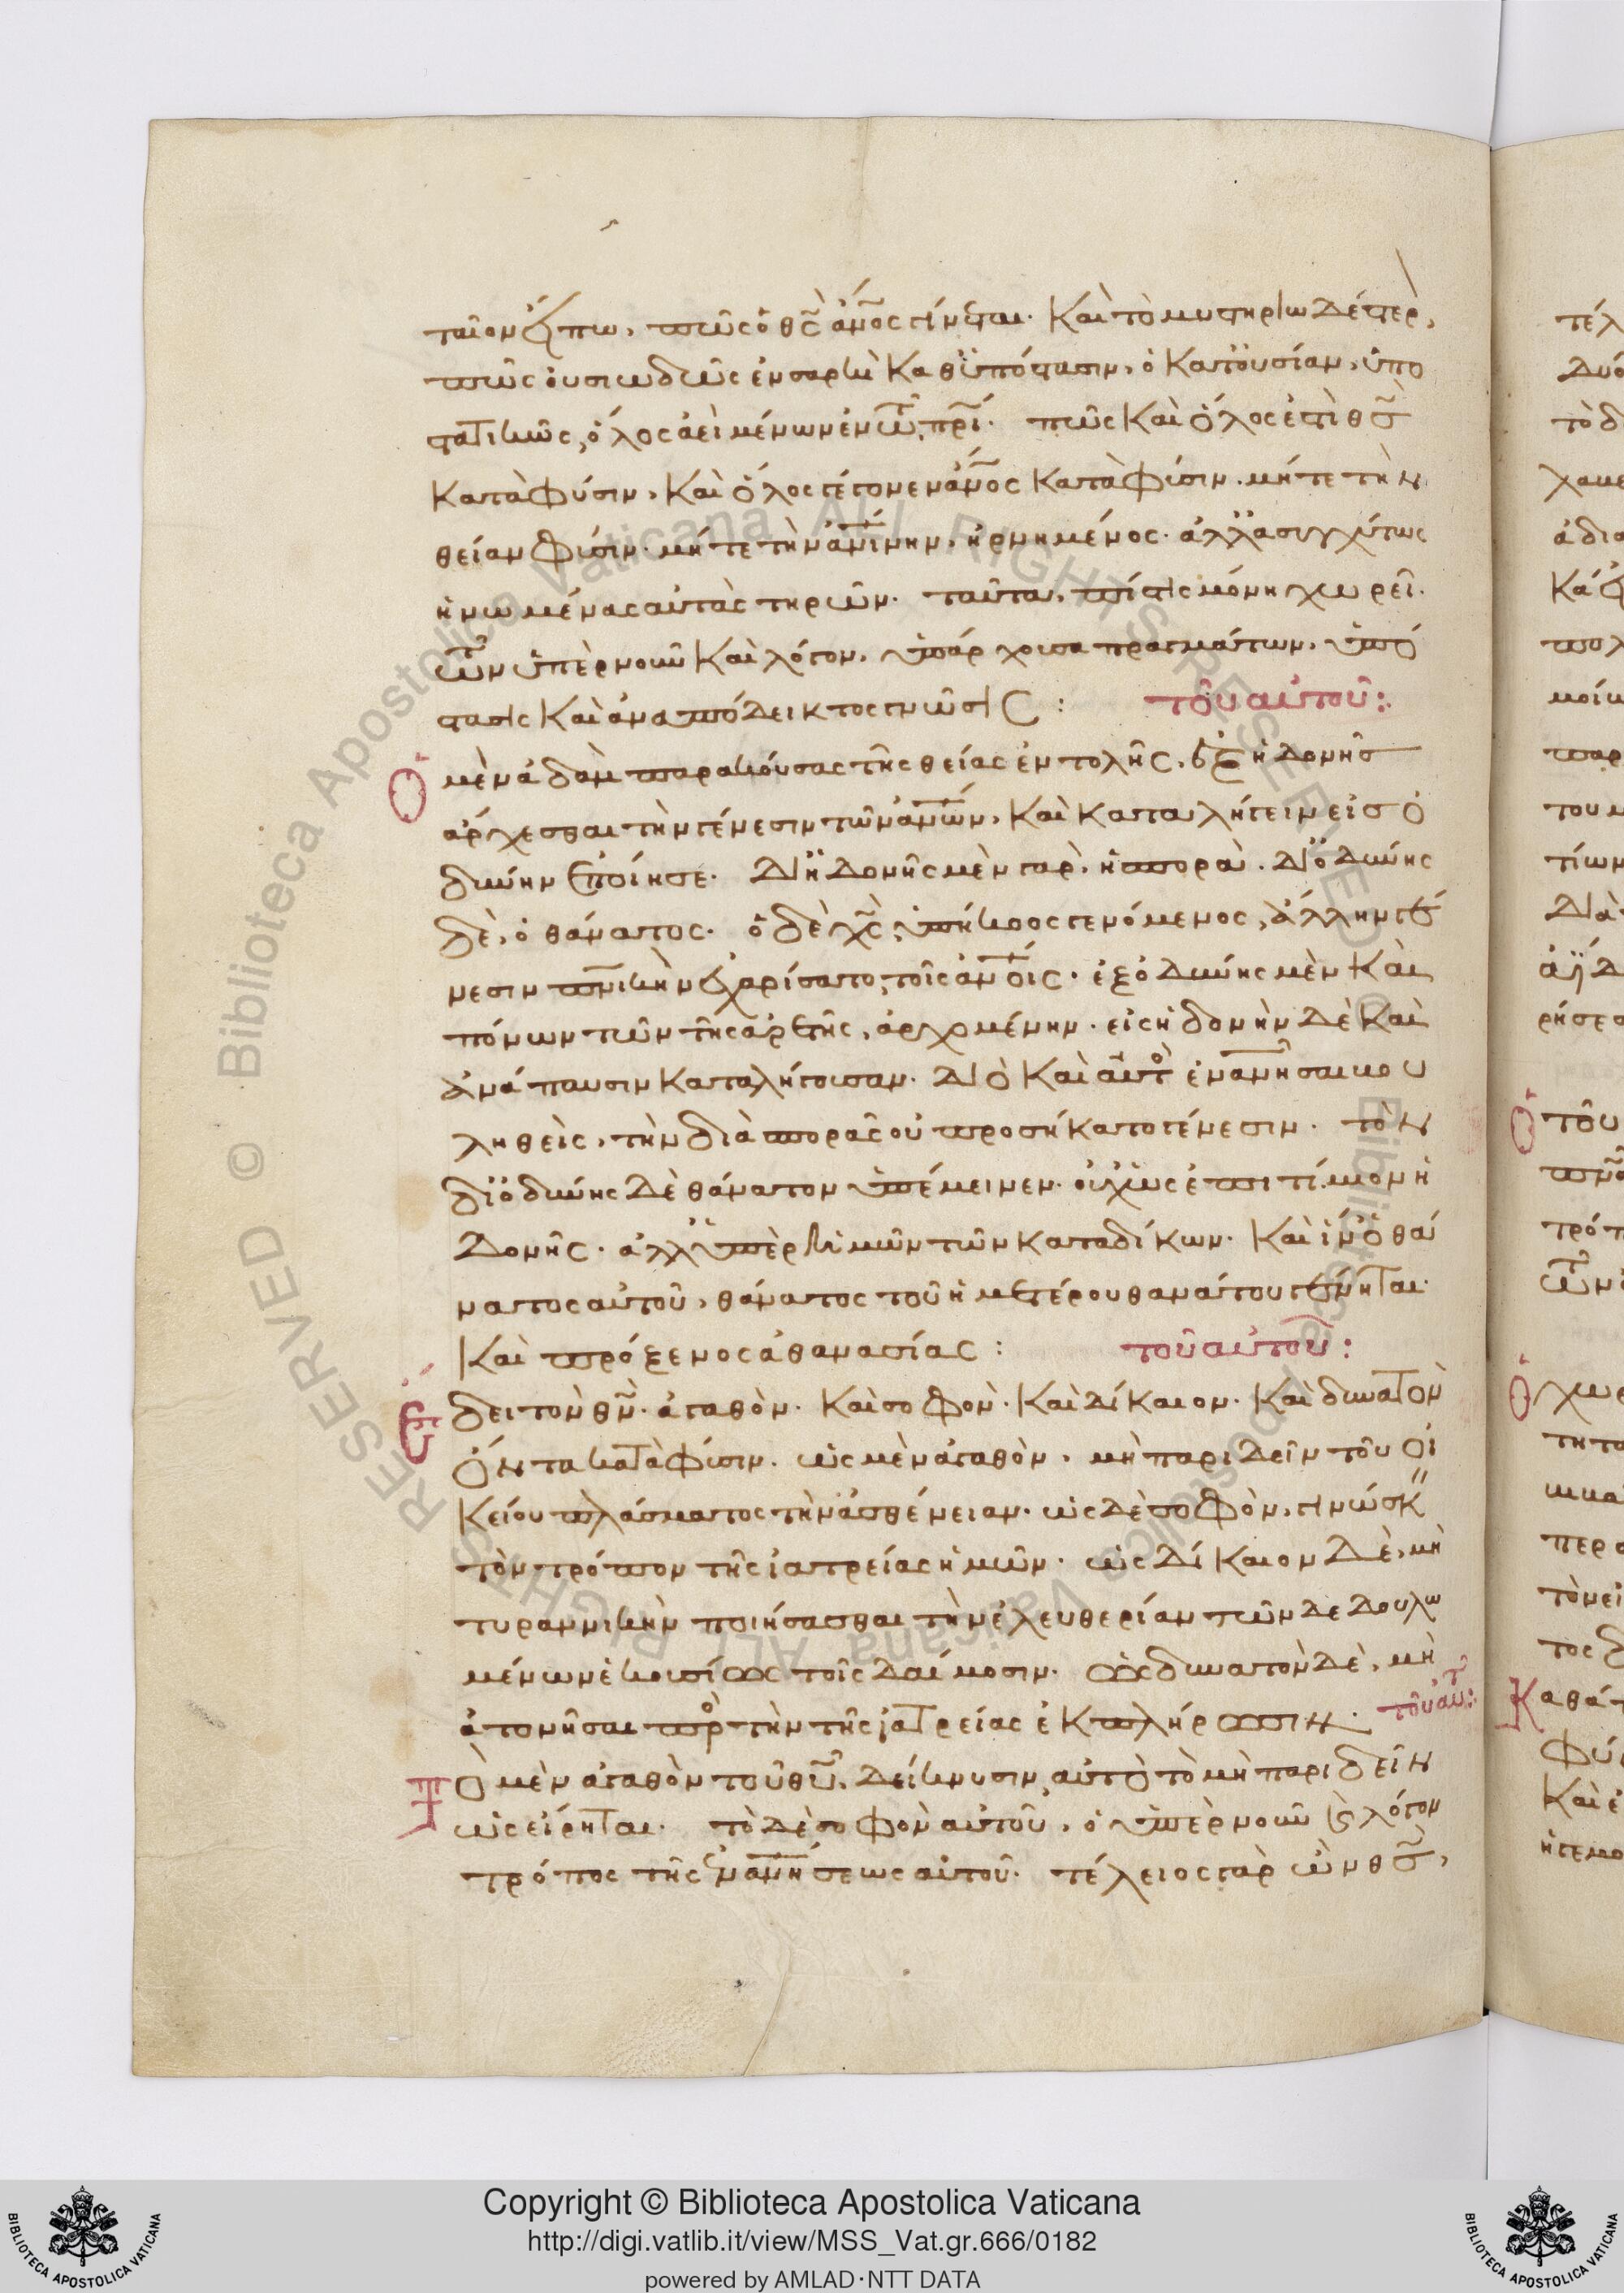 ταῖον ἔγνω, πῶς ὁ θς̄ ἄν̄ος γίνεται. Καὶ τὸ μυστηριωδέστερ,
πῶς οὐσιωδῶς ἐν σαρκὶ Καθ' ὑπόστασιν, ὁ Κατ' οὐσίαν, ὑπο
στατικῶς, ὅλος ἀεὶ μένων ἐν τῶ πρ̄ί. πῶς Καὶ ὅλος ἐστὶ θς̄
Κατὰ φύσιν, Καὶ ὅλος γέγονεν ἄν̄ος Κατὰ φύσιν. μήτε τὴν
θείαν φύσιν. μήτε τὴν ἀν̄ίνην, ἠρνημένος. ἀλλ' ἀσυγχύτως
ἡνωμένας αὐτὰς τηρῶν. ταῦτα, πίστις μόνη χωρεῖ.
τῶν ὑπὲρ νοῦν Καὶ λόγον, ὑπάρχουσα πραγμάτων, ὑπό
στασις Καὶ ἀναπόδεικτος γνῶσις : τοῦ αὐτοῦ :
Ὁ μὲν ἀδὰμ παρακούσας τῆς θείας ἐντολῆς, ἐξ ἡδονῆς
ἄρχεσθαι τὴν γένεσιν τῶν ἀν̄ων, Καὶ Καταλήγειν εἰς ὀ
δύνην ἐποίησε. Δι' ἡδονῆς μὲν γὰρ, ἡ σπορά. Δι' ὀδύνης
δὲ, ὁ θάνατος. ὁ δὲ χς̄, ὑπήκοος γενόμενος, ἄλλην γέ
νεσιν πν̄ικὴν ἐχαρίσατο, τοῖς ἀν̄οις. ἐξ ὀδύνης μὲν Καὶ
πόνων τῶν τῆς ἀρετῆς, ἀρχομένην. εἰς ἡδονὴν Δὲ Καὶ
ἀνάπαυσιν Καταλήγουσαν. Διὸ Καὶ αὐτὸς ἐναν̄ῆσαι βου
ληθεὶς, τὴν διὰ σπορᾶς οὐ προσήκατο γένεσιν. τὸν
δι' ὀδύνης Δὲ θάνατον ὑπέμεινεν. οὐχ ὡς ἐπιτίμιον ἡ
Δονῆς. ἀλλ' ὑπὲρ ἡμῶν τῶν Καταδίκων. Καὶ ἵν' ὁ θά
νατος αὐτοῦ, θάνατος τοῦ ἡμετέρου θανάτου γένηται.
Καὶ πρόξενος ἀθανασίας : τοῦ αὐτοῦ :
Ἔδει τὸν θν̄. ἀγαθὸν. Καὶ σοφὸν. Καὶ Δίκαιον. Καὶ δυνατὸν
ὄντα κατὰ φύσιν. ὡς μὲν ἀγαθὸν, μὴ παριδεῖν τοῦ οἰ
Κείου πλάσματος τὴν ἀσθένειαν. ὡς Δὲ σοφὸν, γινώσκ
τὸν τρόπον τῆς ἰατρείας ἡμῶν. ὡς Δίκαιον Δὲ, μὴ
τυραννικὴν ποιήσασθαι τὴν ἐλευθερίαν τῶν Δεδουλω
μένων ἑκουσίως τοῖς Δαίμοσιν. ὡς δυνατὸν Δὲ, μὴ
ἀτονῆσαι πρὸ τὴν τῆς ἰατρείας ἐκπλήρωσιν. τοῦ αὐτ:
Τὸ μὲν ἀγαθὸν τοῦ θῡ, Δείκνυσιν αὐτὸ τὸ μὴ παριδεῖν
ὡς εἴρηται. τὸ Δὲ σοφὸν αὐτοῦ, ὁ ὑπὲρ νοῦν ϗ λόγον
τρόπος τῆς ἐναν̄ήσεως αὐτοῦ. τέλειος γὰρ ὢν θς̄,
Copyright © Biblioteca Apostolica Vaticana
http://digi.vatlib.it/view/MSS_Vat.gr.666/0182
powered by AMLAD·NTT DATA